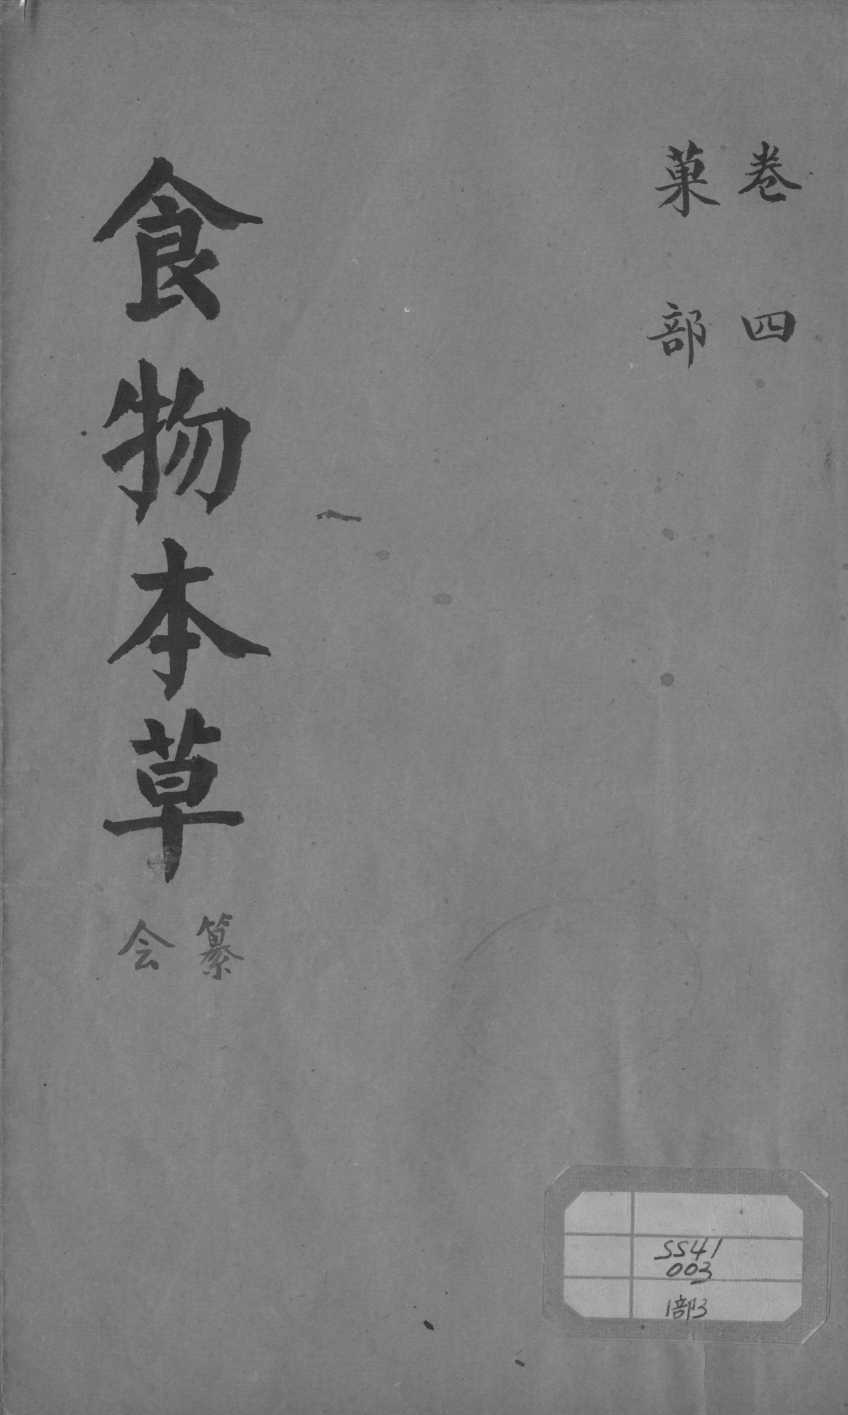 卷四
菓部
食物本草
纂
会
SS41
003
1部3